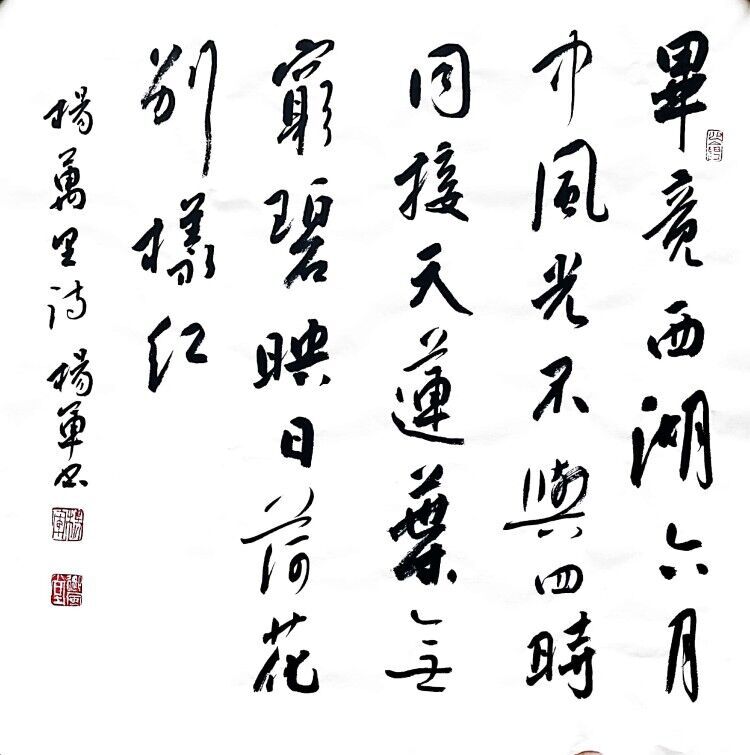 畢竟西湖六月
中風光不與四時
同接天蓮葉無
窮碧映日荷花
别樣红
楊萬里诗 楊軍书